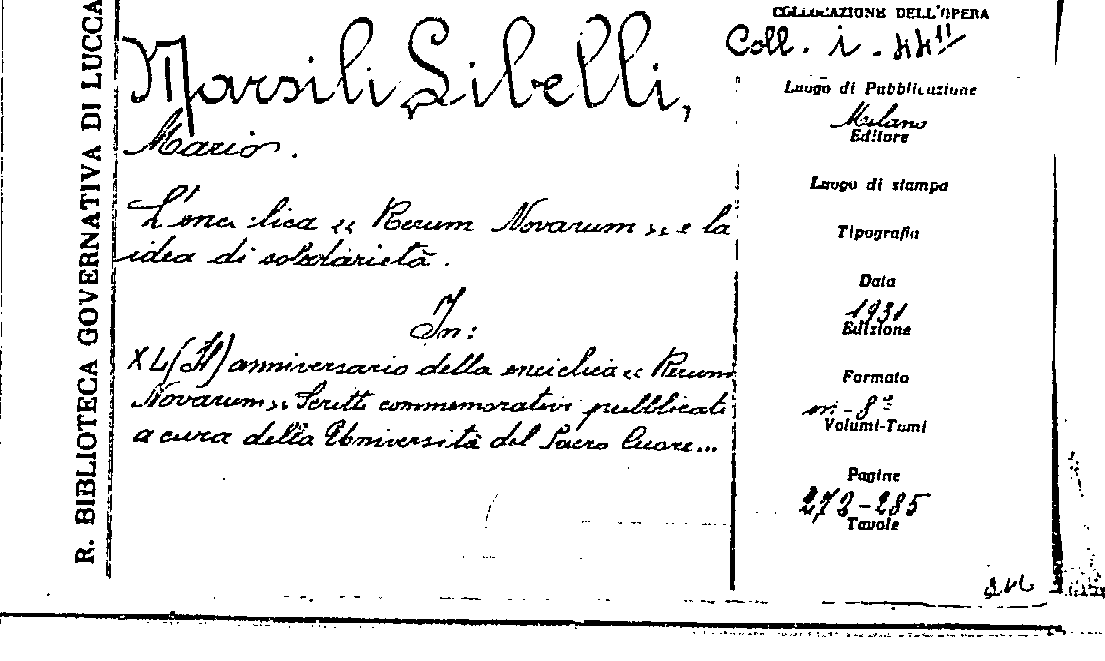 R. BIBLIOTECA GOVERNATIVA DI LUCCA
Marsili Libelli,
Mario.
L'enciclica « Rerum Novarum » e la
idea di solidarietà.
In:
XL(H) anniversario della enciclica « Rerum
Novarum ». Scritti commemorativi pubblicati
a cura della Università del Sacro Cuore...
COLLOCAZIONE DELL'OPERA
Coll. i - 44
Luogo di Pubblicazione
Milano
Editore
Luogo di stampa
Tipografia
Data
1931
Edizione
Formato
in-8º
Volumi-Tomi
Pagine
272-285
Tavole